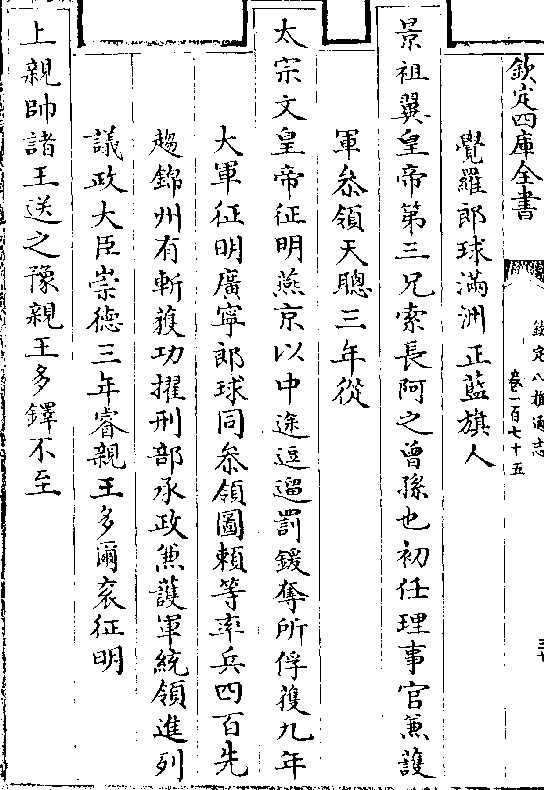 欽定四庫全書
欽定八旗通志
卷一百七十五
覺羅郎球滿洲正藍旗人
景祖翼皇帝第三兄索長阿之曾孫也初任理事官兼護
軍叅領天聰三年從
太宗文皇帝征明燕京以中途逗遛罰鍰奪所俘獲九年
大軍征明廣寧郎球同叅領圖賴等率兵四百先
趨錦州有斬獲功擢刑部承政兼護軍統領進列
議政大臣崇德三年睿親王多爾衮征明
上親帥諸王送之豫親王多鐸不至